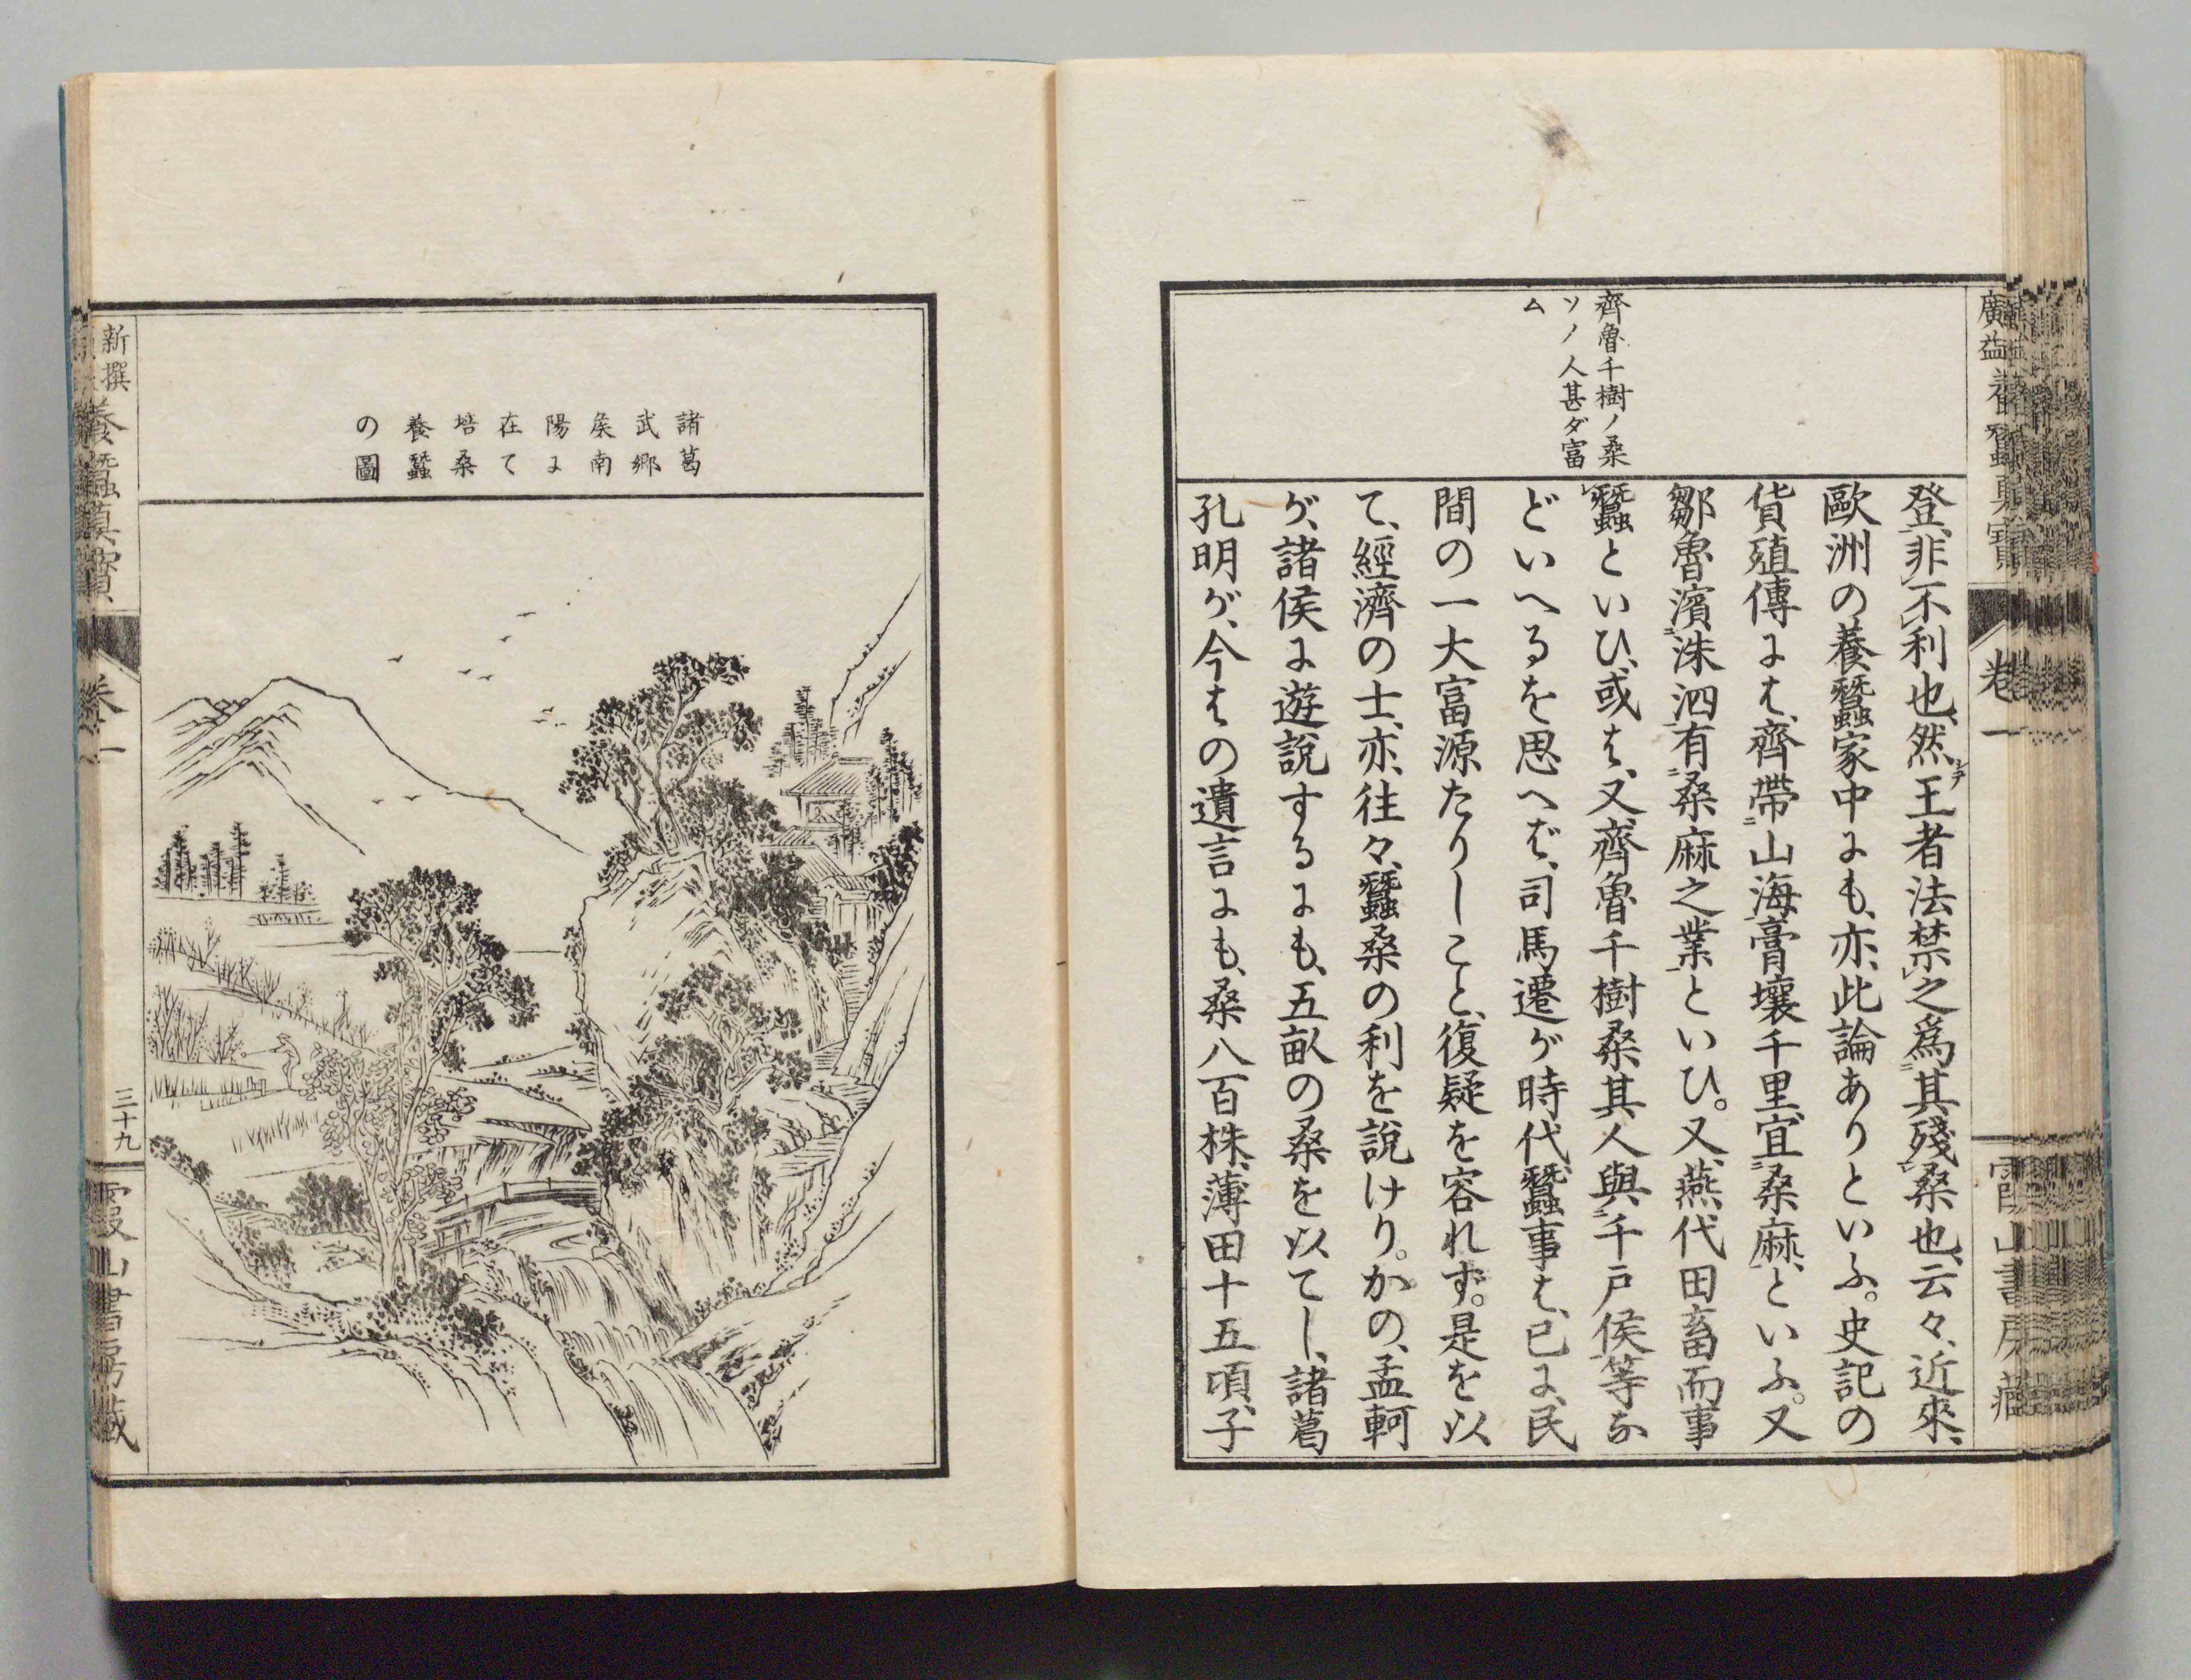 廣益養蠶眞寶
卷一
霞山書房藏
齊魯千樹ノ桑
ソノ人甚ダ富
ム
登、非不利也、然シテ王者法禁之爲其殘桑也、云々、近來、
歐洲の養蠶家中にも、亦、此論ありといふ。史記の
貨殖傳には、齊帶山海膏壤千里、宜桑麻、といふ。又
鄒魯濱洙泗有桑麻之業といひ。又、燕代田畜而事
蠶といひ、或は、又、齊魯千樹桑其人與千戸侯等な
どいへるを思へば、司馬遷が時代、蠶事は、已に、民
間の一大富源たりしこと、復疑を容れず。是を以
て、經濟の士、亦、往々、蠶桑の利を説けり。かの、孟軻
が、諸侯に遊説するにも、五畝の桑を以てし、諸葛
孔明が、今はの遺言にも、桑八百株、薄田十五頃、子
諸葛
武鄕
矦南
陽に
在て
培桑
養蠶
の圖
新撰養蠶眞寶
卷一
三十九
霞山書房藏